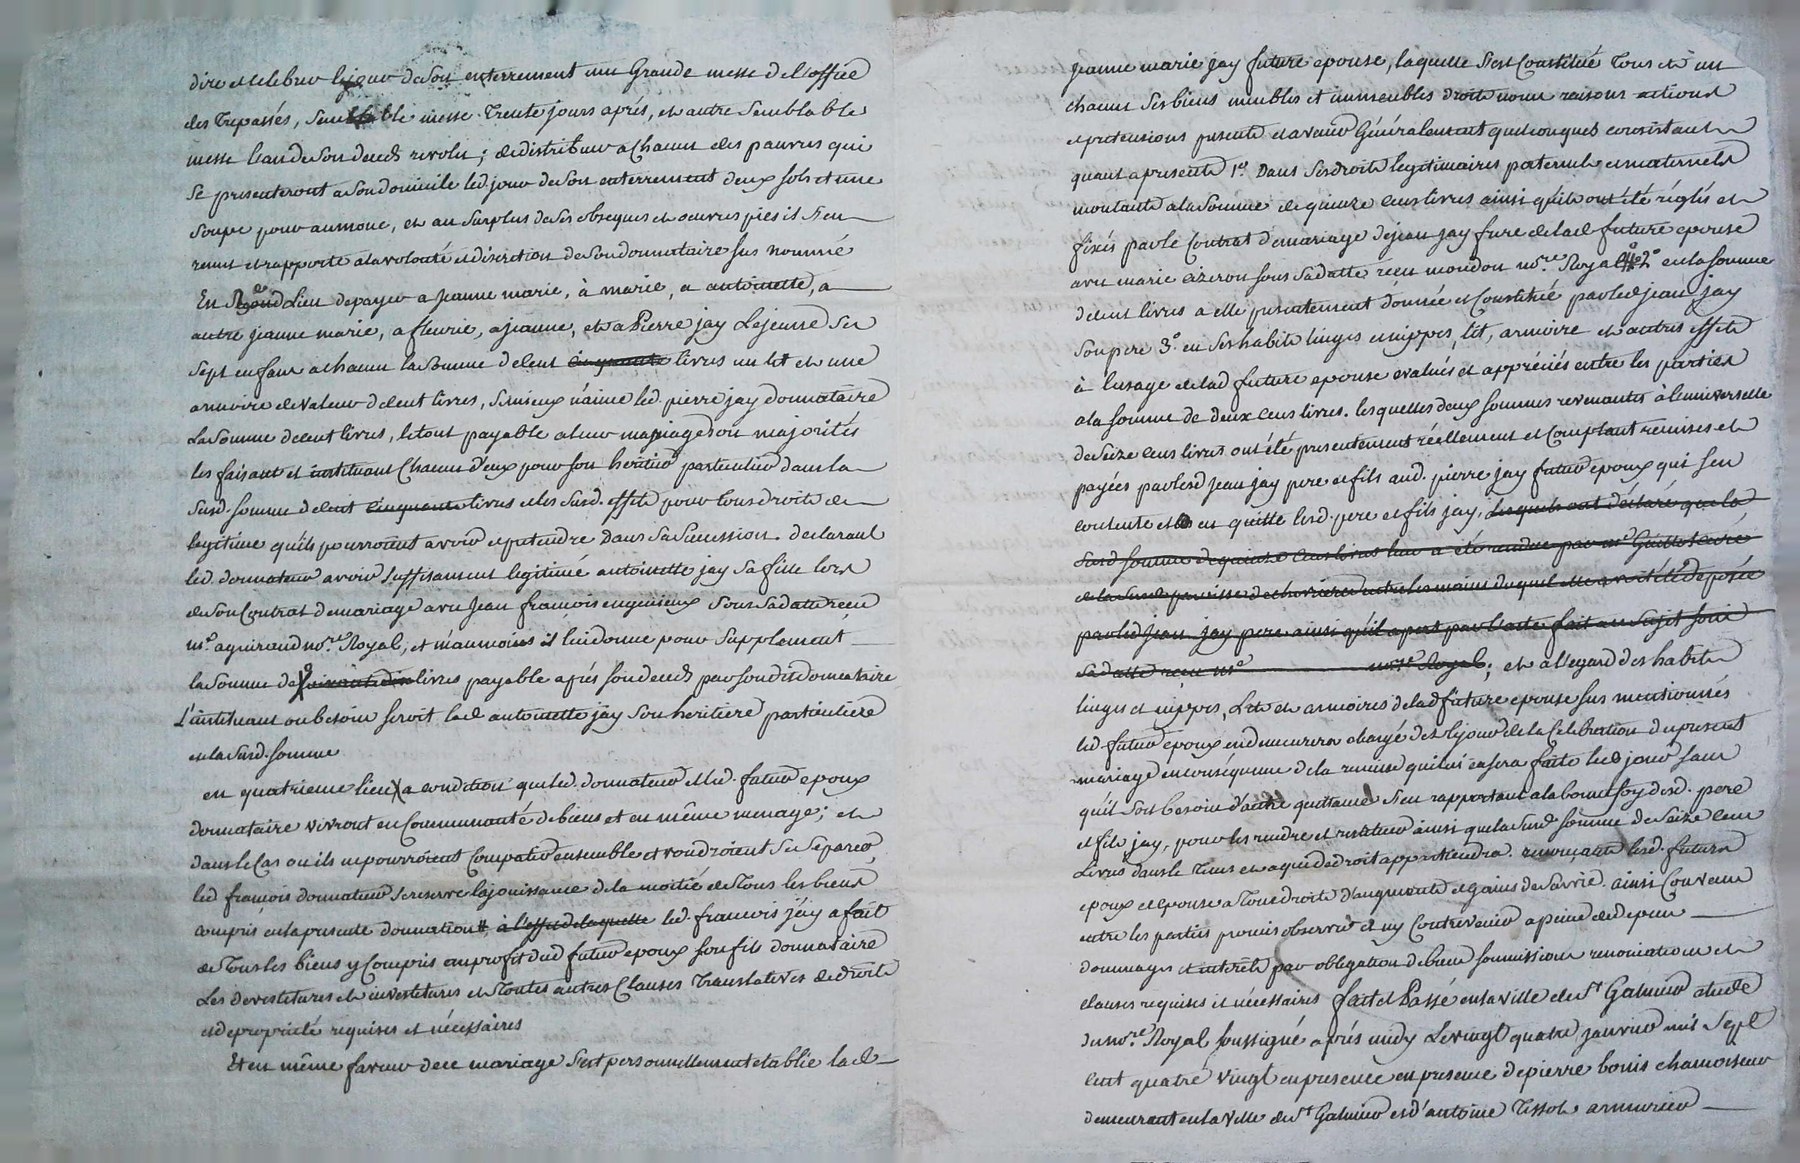 dire et celebrer le jour de son enterrement une Grande messe de l'office
des Trepassés, semblable messe Trente jours aprés, et autre semblable
messe l'an de son deceds revolu; de distribuer a chacun des pauvres qui
se presenteront a son domicile led. jour de son enterrement deux sols et une
soupe pour aumone, et au surplus de ses obseques et oeuvres pies il s'en
remet et rapporte a la volonté et discretion de son donnataire sus nommé
En lieu de payer a Jeanne marie, à marie, a antoinette, a
autre jeanne marie, a fleurie, a jeanne, et a Pierre jay Lejeune ses
sept enfans a chacun la somme de cent cinquante livres un lit et une
armoire de valeur de cent livres, si mieux n'aime led. pierre jay donnataire
La somme de cent livres, le tout payable a leur mariage ou majorités
les faisant et instituant chacun d'eux pour son heritier particulier dans la
susd. somme de cent cinquante livres et les susd. effets pour tous droits de
legitime qu'ils pourroient avoir et pretendre Dans sa succession. declarant
led. donnateur avoir suffisament legitimé antoinette jay sa fille lors
de son Contrat de mariage avec Jean françois enjenieux sous sa datte reçu
me. aguiraud nore. Royal, et néanmoins il lui donne pour supplement
la somme de livres payable aprés son deceds par son dit donnataire
L'instituant ou besoin seroit lad. antoinette jay son heritiere particuliere
en la susd. somme
en quatrieme lieu a condition que led. donnateur et led. futur epoux
donnataire vivront en Communauté de biens et en même menage; et
dans le cas ou ils ne pourroient Compatir ensemble et voudroient se separer,
led. françois donnateur se reserve la jouissance de la moitié de Tous les biens
compris en la presente donnation à l'effet de laquelle led. francois jay a fait
de Tous les biens y Compris au profit dud. futur epoux son fils donnataire
Les devestitures et investitures et Toutes autres Clauses Translatives de droits
et de propriété requises et nécessaires
Et en même faveur de ce mariage s'est personnellement etablie lad.
jeanne marie jay future epouse, laquelle s'est Constitué Tous et un
chacun ses biens meubles et immeubles droits noms raisons actions
et pretensions presents et avenir Généralement quelconques consistant
quant a present 1o. Dans ses droits legitimaires paternels et maternels
montants a la somme de quinze cens livres ainsi qu'ils ont été réglés et
fixés par le Contrat de mariage de jean jay frere de lad. future epouse
avec marie cizeron sous sa datte reçu mondon nore. Royal 2o en la somme
de cent livres a elle presentement donnée et Constitué par led. jean jay
son pere 3o. en ses habits linges et nippes, lit, armoire et autres effets
à l'usage de lad. future epouse evalués et appréciés entre les parties
a la somme de deux cens livres. lesquelles deux sommes revenantes à l'universelle
de seize cens livres ont été presentement réellement et Comptant remises et
payées par lesd. jean jay pere et fils aud. pierre jay futur epoux qui s'en
contente et en quitte lesd. pere et fils jay, lesquels ont déclaré que la
susd. somme de quinze cens livres leur a été rendue par mr Guillot curé
de la susd. paroisse de chevrieres entre les mains duquel elle avoit été déposée
par led. Jean jay pere ainsi qu'il apert par l'acte fait au sujet sous
sa datte reçu me nore. Royal; et a l'egard des habits
linges et nippes, Lits et armoires de lad. future epouse sus mentionnés
led. futur epoux en demeurera chargé dès le jour de la Celebration du present
mariage en conséquence de la remise qui lui en sera faite led. jour sans
qu'il soit besoin d'autre quittance s'en rapportant a la bonne foy desd. pere
et fils jay, pour les rendre et restituer ainsi que la susd. somme de seize cens
Livres dans le Tems et a qui de droit appartiendra. renonçants lesd. futurs
epoux et epouse a Tous droits d'augments et gains de survie. ainsi Convenu
entre les parties promis observer et n'y Contrevenir a peine de depens
dommages et interêts par obligation de biens soumissions renonciations et
clauses requises et nécessaires fait et Passé en la ville de St. Galmier etude
du nore. Royal soussigné aprés midy Le vingt quatre janvier mil Sept
cent quatre vingt en presence en presence de pierre bonis chamoiseur
demeurant en la ville de St. Galmier et d'antoine Tissot armurier